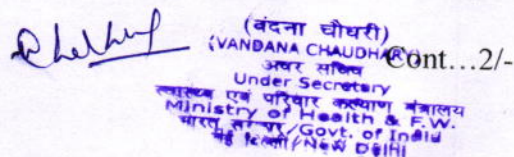 (वंदना चौधरी)
(VANDANA CHAUDHARY)
Cont...2/-
अवर सचिव
Under Secretary
स्वास्थ्य एवं परिवार कल्याण मंत्रालय
Ministry of Health & F.W.
भारत सरकार/Govt. of India
नई दिल्ली/New Delhi